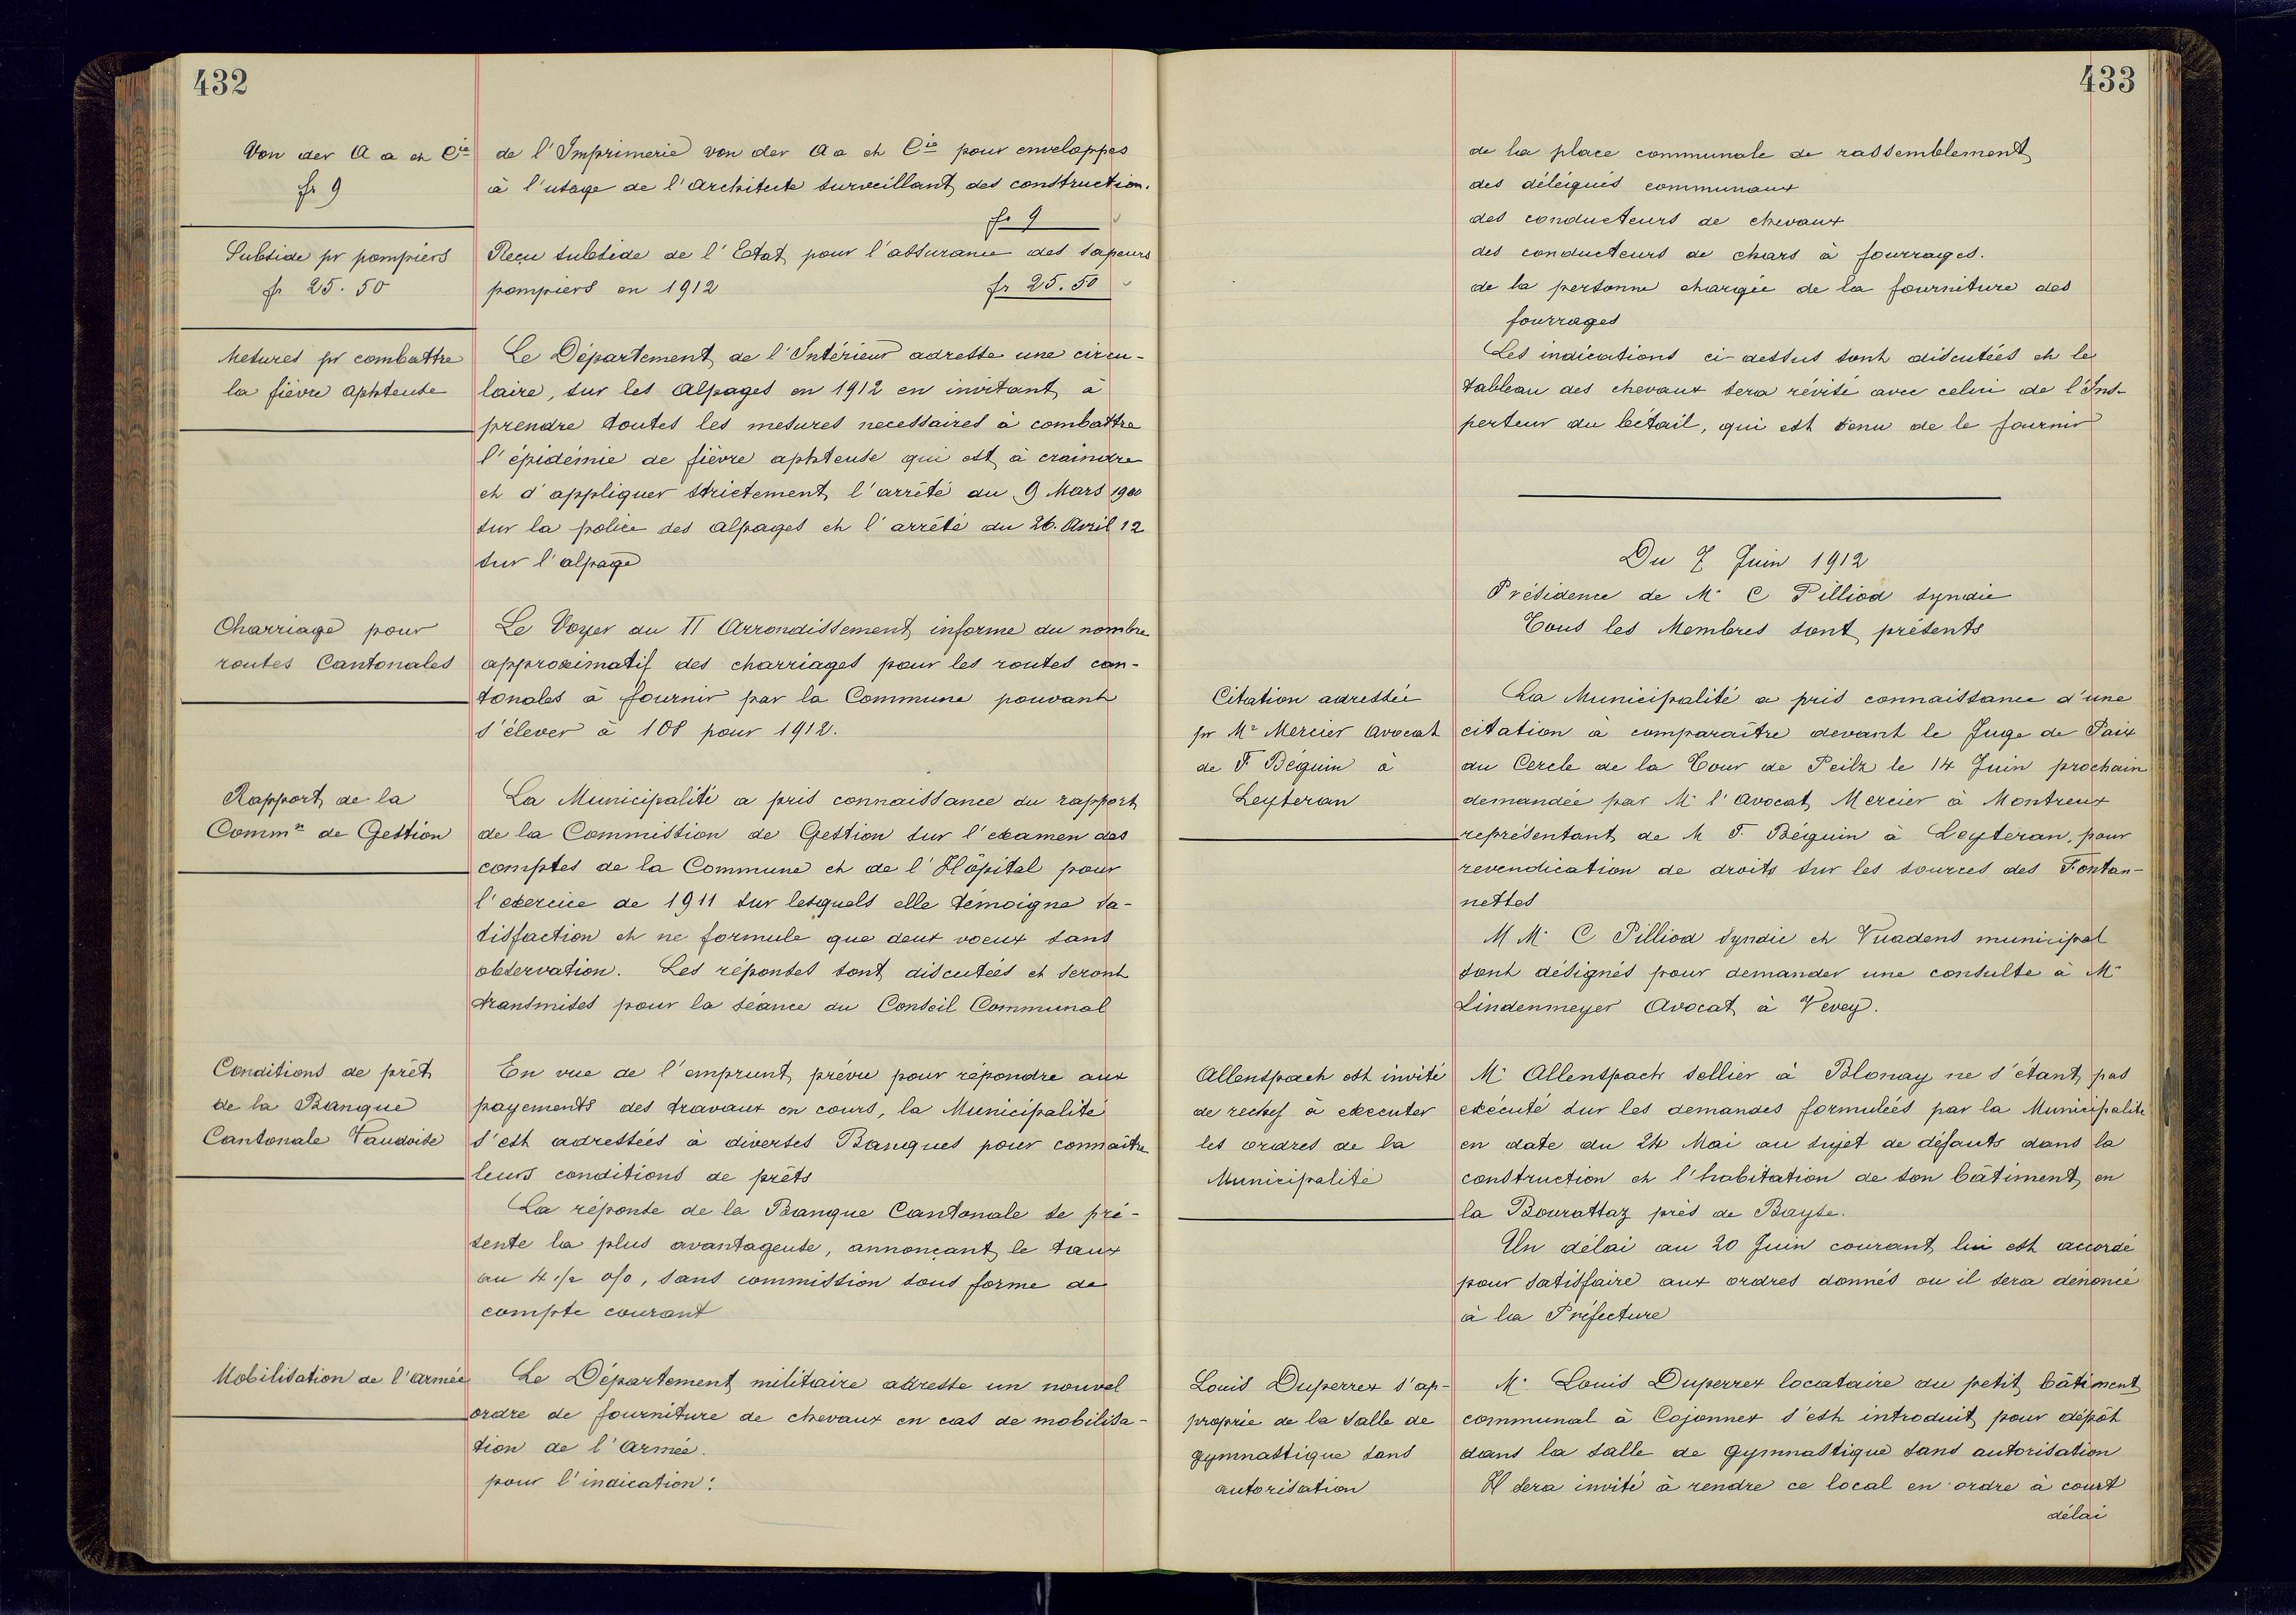 432
Von der Aa et Cie
fr 9
de l'Imprimerie von der Aa et Cie pour enveloppes
à l'usage de l'Architecte surveillant des construction.
fr 9
Subside pr pompiers
fr 25.50
Reçu subside de l'Etat pour l'assurance des sapeurs
pompiers en 1912 fr 25.50
Mesures pr combattre
la fièvre aphteuse
Le Département de l'Intérieur adresse une circu-
laire, sur les Alpages en 1912 en invitant à
prendre toutes les mesures necessaires à combattre
l'épidémie de fièvre aphteuse qui est à craindre
et d'appliquer strictement l'arrêté du 9 Mars 1900
sur la police des Alpages et l'arrêté du 26. Avril 12
sur l'alpage
Charriage pour
routes Cantonales
Le Voyer du II Arrondissement informe du nombre
approximatif des charriages pour les routes can-
tonales à fournir par la Commune pouvant
s'élever à 108 pour 1912.
Rapport de la
Commn de Gestion
La Municipalité a pris connaissance du rapport
de la Commission de Gestion sur l'examen des
comptes de la Commune et de l'Hôpital pour
l'exercice de 1911 sur lesquels elle témoigne sa-
tisfaction et ne formule que deux voeux sans
observation. Les réponses sont discutées et seront
transmises pour la séance du Conseil Communal
Conditions de prêt
de la Banque
Cantonale Vaudoise
En vue de l'emprunt prévu pour répondre aux
payements des travaux en cours, la Municipalité
s'est adressées à diverses Banques pour connaître
leurs conditions de prêts
La réponse de la Banque Cantonale se pré-
sente la plus avantageuse, annonçant le taux
au 4 1/2 0/0, sans commission sous forme de
compte courant
Mobilisation de l'armée
Le Département militaire adresse un nouvel
ordre de fourniture de chevaux en cas de mobilisa-
tion de l'Armée.
pour l'indication:
433
de la place communale de rassemblement
des délégués communaux
des conducteurs de chevaux
des conducteurs de chars à fourrages.
de la personne chargée de la fourniture des
fourrages
Les indications ci-dessus sont discutées et le
tableau des chevaux sera révisé avec celui de l'Ins-
pecteur du bétail, qui est tenu de le fournir
Du 7 Juin 1912
Présidence de Mr C Pilliod syndic
Tous les Membres sont présents
Citation adressée
pr Mr Mercier Avocat
de F. Béguin à
Leyteran
La Municipalité a pris connaissance d'une
citation à comparaître devant le Juge de Paix
du Cercle de la Tour de Peilz le 14 Juin prochain
demandée par Mr l'Avocat Mercier à Montreux
représentant de M F. Béguin à Leyteran, pour
revendication de droits sur les sources des Fontan-
nettes
M Mr C Pilliod syndic et Vuadens municipal
sont désignés pour demander une consulte à Mr
Lindenmeyer Avocat à Vevey.
Allenspach est invité
de rechef à executer
les ordres de la
Municipalité
Mr Allenspach sellier à Blonay ne s'étant pas
exécuté sur les demandes formulées par la Municipalité
en date du 24 Mai au sujet de défauts dans la
construction et l'habitation de son bâtiment en
la Bourattaz près de Bayse.
Un délai au 20 Juin courant lui est accordé
pour satisfaire aux ordres donnés ou il sera dénoncé
à la Préfecture
Louis Duperrex s'ap-
proprie de la Salle de
gymnastique sans
autorisation
Mr Louis Duperrex locataire du petit bâtiment
communal à Cojonnex s'est introduit pour dépôt
dans la salle de gymnastique sans autorisation
Il sera invité à rendre ce local en ordre à court
délai